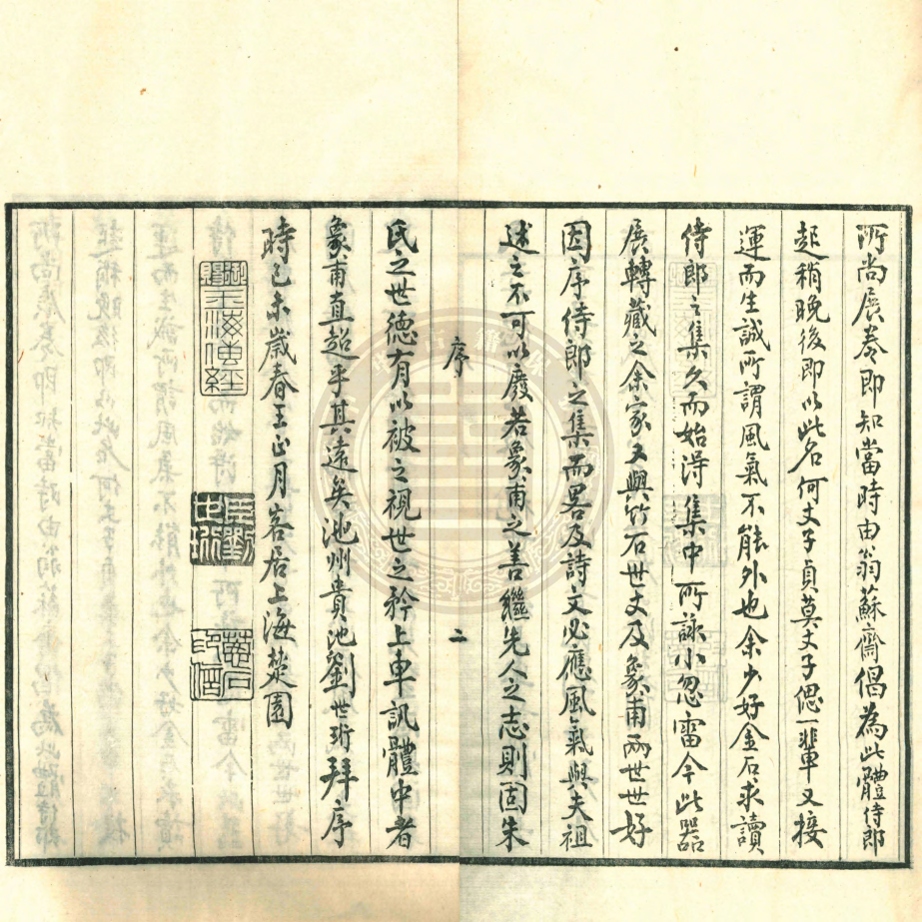 所尚展卷即知當時由翁蘇齋倡為此體侍郎
起稍晚後即以此名何丈子貞莫丈子偲一輩又接
運而生誠所謂風氣不能外也余少好金石求讀
侍郎之集久而始得集中所詠小忽雷今此器
展轉藏之余家又與竹石世丈及象甫兩世世好
因序侍郎之集而畧及詩文必應風氣與夫祖
述之不可以廢若象甫之善繼先人之志則固朱
序
二
氏之世德有以被之視世之矜上車訊體中者
象甫直超乎其遠矣池州貴池劉世珩拜序
時己未歲春王正月客居上海楚園
臣劉世珩
蔥石印信